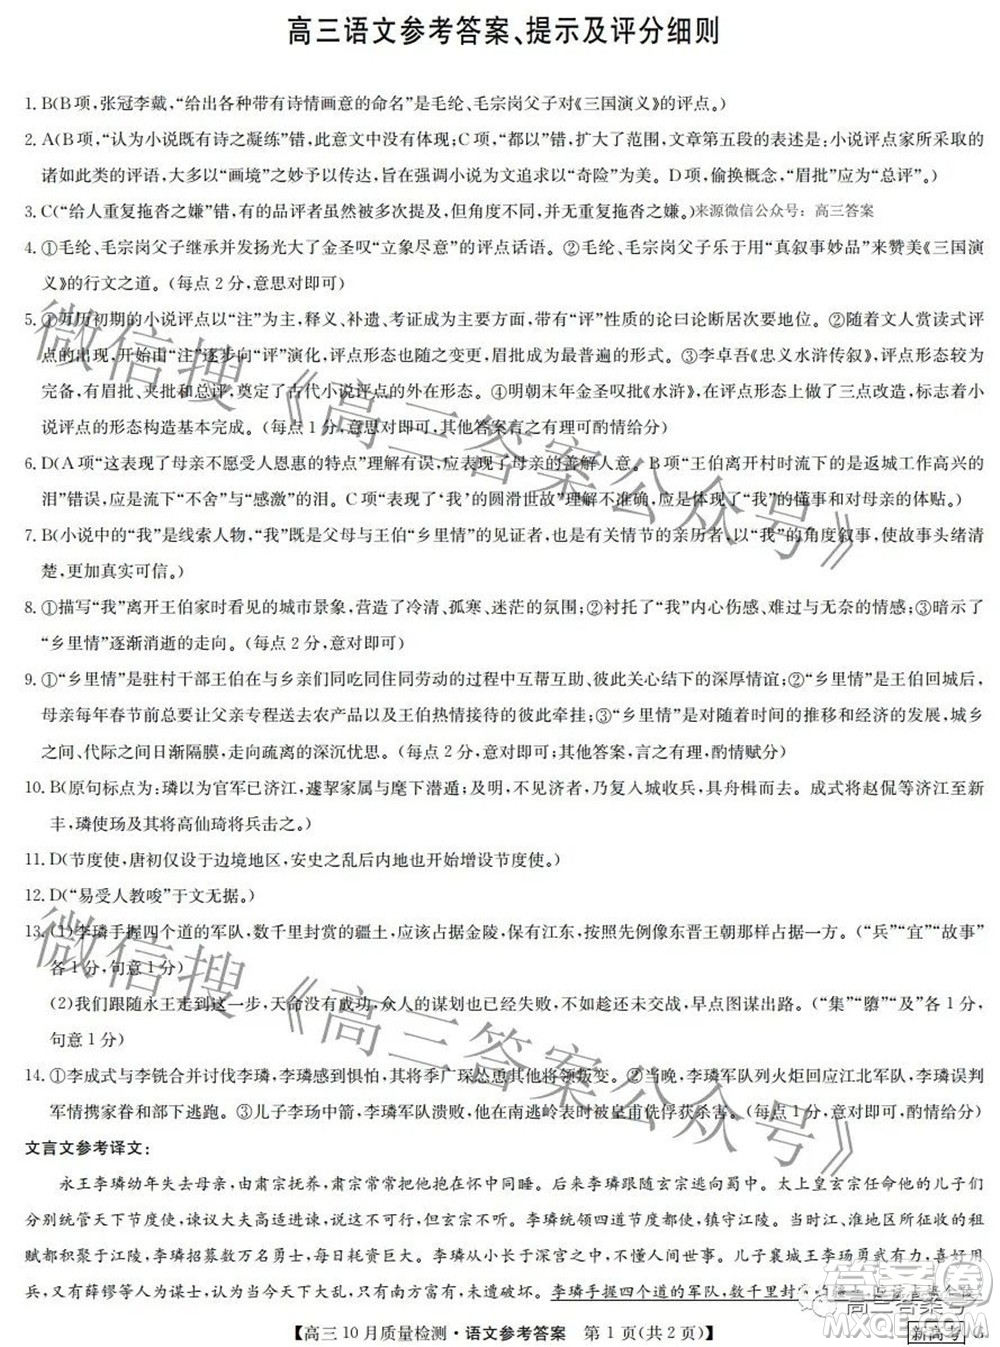 高三语文参考答案、提示及评分细则
1. B(B项,张冠李戴,“给出各种带有诗情画意的命名”是毛纶、毛宗岗父子对《三国演义》的评点。)
2. A(B项,“认为小说既有诗之凝练”错,此意文中没有体现;C项,“都以”错,扩大了范围,文章第五段的表述是:小说评点家所采取的
诸如此类的评语,大多以“画境”之奇妙予以传达,旨在强调小说为文追求以“奇险”为美。D项,偷换概念,“眉批”应为“总评”。)
3. C(“给人重复拖沓之嫌”错,有的品评者虽然被多次提及,但角度不同,并无重复拖沓之嫌。)来源微信公众号:高三答案
4. ①毛纶、毛宗岗父子继承并发扬光大了金圣叹“立象尽意”的评点话语。②毛纶、毛宗岗父子乐于用“真叙事妙品”来赞美《三国演
义》的行文之道。(每点2分,意思对即可)
5. ①万历初期的小说评点以“注”为主,释义、补遗、考证成为主要方面,带有“评”性质的论曰论断居次要地位。②随着文人赏读式评
点的出现,开始由“注”逐步向“评”演化,评点形态也随之变化,眉批成为最普遍的形式。③李卓吾《忠义水浒传叙》,评点形态较为
完备,有眉批、夹批和总评,奠定了古代小说评点的外在形态。④明朝末年金圣叹批《水浒》,在评点形态上做了三点改造,标志着小
说评点的形态构造基本完成。(每点1分,意思对即可,其他答案言之有理可酌情给分)
6. D(A项“这表现了母亲不愿受人恩惠的特点”理解有误,应是表现了母亲的善解人意。B项“王伯离开村时流下的是返城工作高兴的
泪”错误,应是流下“不舍”与“感激”的泪。C项“表现了‘我’的圆滑世故”理解不准确,应是表现了“我”的懂事和对母亲的体贴。)
7. B(小说中的“我”是线索人物,“我”既是父母与王伯“乡里情”的见证者,也是有关情节的亲历者,以“我”的角度叙事,使故事头绪清
楚,更加真实可信。)
8. ①描写“我”离开王伯家时看见的城市景象,营造了冷清、孤寒、迷茫的氛围;②衬托了“我”内心伤感、难过与无奈的情感;③暗示了
“乡里情”逐渐消逝的走向。(每点2分,意对即可)
9. ①“乡里情”是驻村干部王伯在与乡亲们同吃同住同劳动的过程中互帮互助、彼此关心结下的深厚情谊;②“乡里情”是王伯回城后,
母亲每年春节前总要让父亲专程送去农产品以及王伯热情接待的彼此牵挂;③“乡里情”是对随着时间的推移和经济的发展,城乡
之间、代际之间日渐隔膜,走向疏离的深沉忧思。(每点2分,意对即可;其他答案,言之有理,酌情赋分)
10. B(原句标点为:璘以为官军已济江,遽挈家属与麾下潜遁;及明,不见济者,乃复入城收兵,具舟楫而去。成式将赵侃等济江至新
丰,璘使玚及其将高仙琦将兵击之。)
11. D(节度使,唐初仅设于边境地区,安史之乱后内地也开始增设节度使。)
12. D(“易受人教唆”于文无据。)
13. (1)李璘手握四个道的军队,数千里封赏的疆土,应该占据金陵,保有江东,按照先例像东晋王朝那样占据一方。(“兵”“宜”“故事”
各1分,句意1分)
(2)我们跟随永王走到这一步,天命没有成功,众人的谋划也已经失败,不如趁还未交战,早点图谋出路。(“集”“隳”“及”各1分,
句意1分)
14. ①李成式与李铣合并讨伐李璘,李璘感到惧怕,其将季广琛怂恿其他将领叛变。②当晚,李璘军队列火炬回应江北军队,李璘误判
军情携家眷和部下逃跑。③儿子李玚中箭,李璘军队溃败,他在南逃岭表时被皇甫侁俘获杀害。(每点1分,意对即可,酌情给分)
文言文参考译文:
永王李璘幼年失去母亲,由肃宗抚养,肃宗常抱着他在怀中同睡。后来李璘跟随玄宗逃向蜀中。太上皇玄宗任命他的儿子们
分别统管天下节度使,谏议大夫高适进谏,说不可行,但玄宗不听。李璘统领四道节度都使,镇守江陵。当时江、淮地区所征收的租
赋都积聚于江陵,李璘招募数万名勇士,每日耗资巨大。李璘从小长于深宫之中,不懂人间世事。儿子襄城王李玚勇武有力,喜好用
兵,又有薛镠等人为谋士,认为当今天下大乱,只有南方富有,未遭破坏。李璘手握四个道的军队,数千里封
【高三10月质量检测·语文参考答案 第1页(共2页)】
新高考
高三答案号
微信搜《高三答案公众号》
微信搜《高三答案公众号》
答案圈